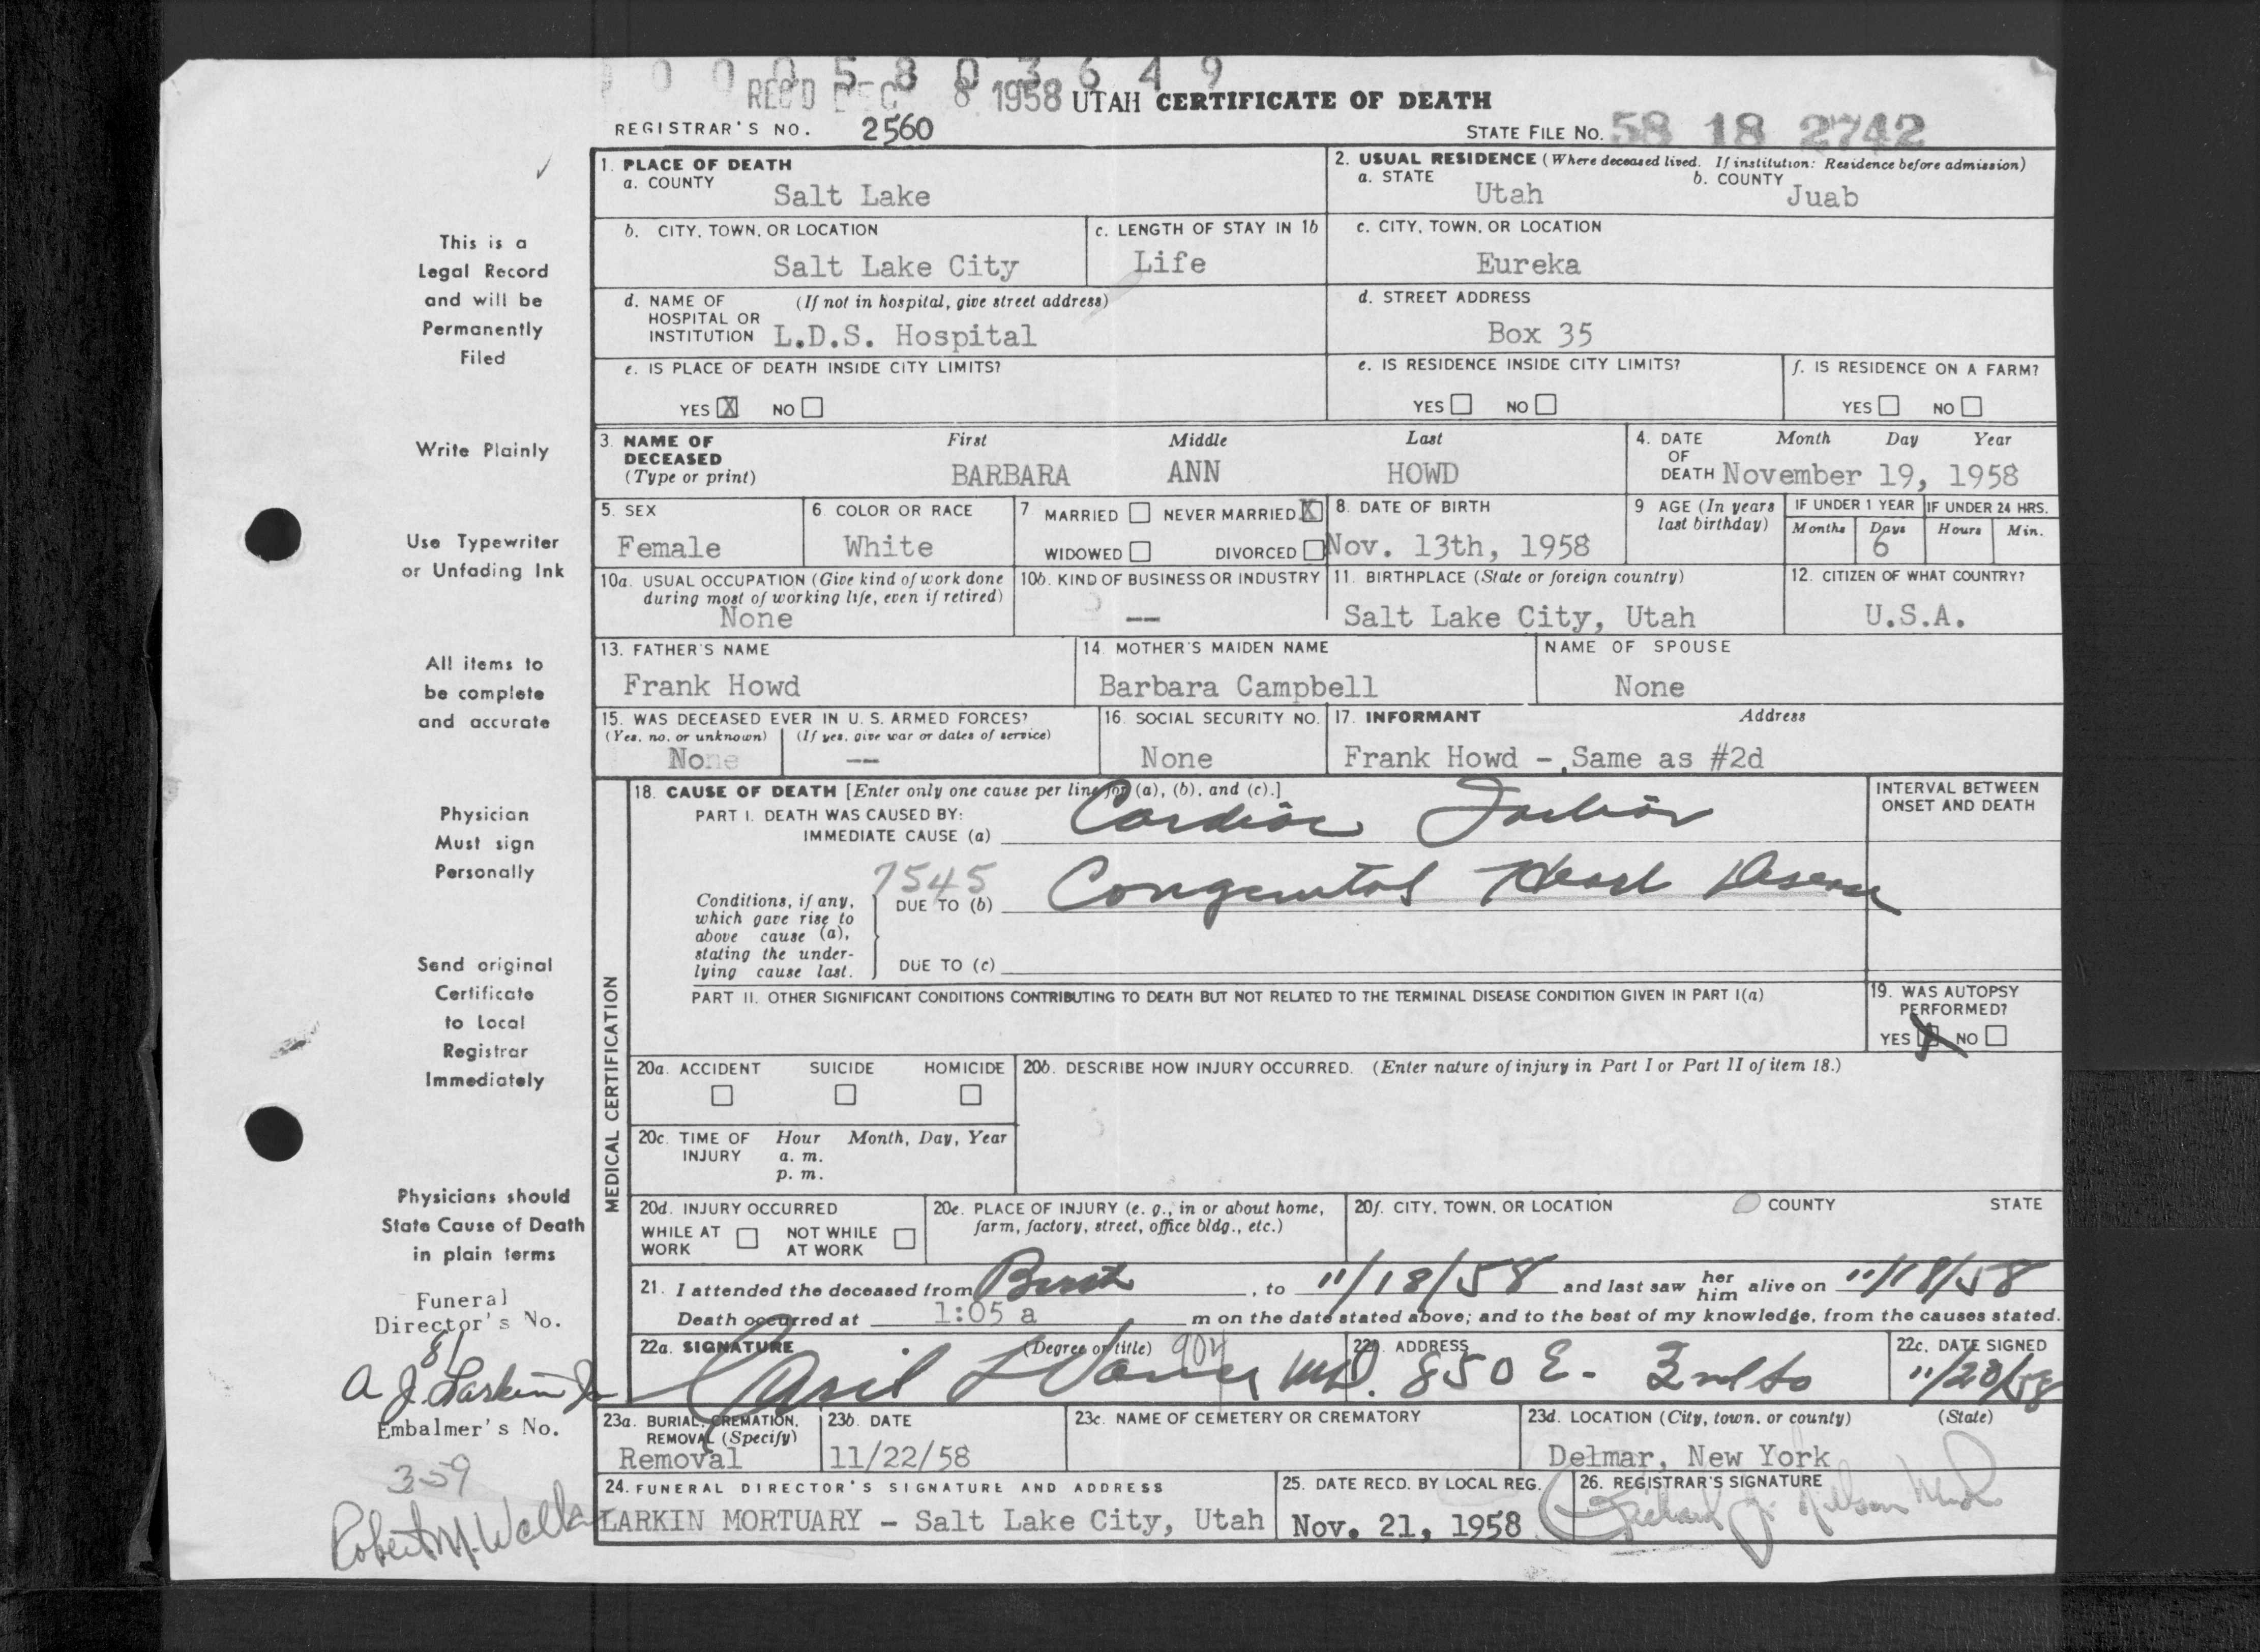 0 0 0 5 8 0 3 6 4 9
REC'D DEC 8 1958 UTAH CERTIFICATE OF DEATH
REGISTRAR'S NO. 2560
STATE FILE NO. 58 18 2742
This is a
Legal Record
and will be
Permanently
Filed
Write Plainly
Use Typewriter
or Unfading Ink
All items to
be complete
and accurate
Physician
Must sign
Personally
Send original
Certificate
to Local
Registrar
Immediately
Physicians should
State Cause of Death
in plain terms
Funeral
Director's No.
81
A J. Larkin Jr
Embalmer's No.
359
Robert M. Walk
1. PLACE OF DEATH
a. COUNTY
Salt Lake
2. USUAL RESIDENCE (Where deceased lived. If institution: Residence before admission)
a. STATE b. COUNTY
Utah Juab
b. CITY, TOWN, OR LOCATION
Salt Lake City
c. LENGTH OF STAY IN 1b
Life
c. CITY, TOWN, OR LOCATION
Eureka
d. NAME OF (If not in hospital, give street address)
HOSPITAL OR
INSTITUTION L.D.S. Hospital
d. STREET ADDRESS
Box 35
e. IS PLACE OF DEATH INSIDE CITY LIMITS?
YES X NO
e. IS RESIDENCE INSIDE CITY LIMITS?
YES NO
f. IS RESIDENCE ON A FARM?
YES NO
3. NAME OF First Middle Last
DECEASED
(Type or print) BARBARA ANN HOWD
4. DATE Month Day Year
OF
DEATH November 19, 1958
5. SEX
Female
6. COLOR OR RACE
White
7. MARRIED NEVER MARRIED X
WIDOWED DIVORCED
8. DATE OF BIRTH
Nov. 13th, 1958
9 AGE (In years
last birthday)
IF UNDER 1 YEAR IF UNDER 24 HRS.
Months Days Hours Min.
6
10a. USUAL OCCUPATION (Give kind of work done
during most of working life, even if retired)
None
10b. KIND OF BUSINESS OR INDUSTRY
--
11. BIRTHPLACE (State or foreign country)
Salt Lake City, Utah
12. CITIZEN OF WHAT COUNTRY?
U.S.A.
13. FATHER'S NAME
Frank Howd
14. MOTHER'S MAIDEN NAME
Barbara Campbell
NAME OF SPOUSE
None
15. WAS DECEASED EVER IN U. S. ARMED FORCES?
(Yes, no, or unknown) (If yes, give war or dates of service)
None --
16. SOCIAL SECURITY NO.
None
17. INFORMANT Address
Frank Howd - Same as #2d
MEDICAL CERTIFICATION
18. CAUSE OF DEATH [Enter only one cause per line for (a), (b), and (c).]
PART I. DEATH WAS CAUSED BY:
IMMEDIATE CAUSE (a) Cardiac Failure
INTERVAL BETWEEN
ONSET AND DEATH
7545
Conditions, if any,
which gave rise to
above cause (a),
stating the under-
lying cause last.
DUE TO (b) Congenital Heart Disease
DUE TO (c)
PART II. OTHER SIGNIFICANT CONDITIONS CONTRIBUTING TO DEATH BUT NOT RELATED TO THE TERMINAL DISEASE CONDITION GIVEN IN PART I(a)
19. WAS AUTOPSY
PERFORMED?
YES X NO
20a. ACCIDENT SUICIDE HOMICIDE
20b. DESCRIBE HOW INJURY OCCURRED. (Enter nature of injury in Part I or Part II of item 18.)
20c. TIME OF Hour Month, Day, Year
INJURY a. m.
p. m.
20d. INJURY OCCURRED
WHILE AT NOT WHILE
WORK AT WORK
20e. PLACE OF INJURY (e. g., in or about home,
farm, factory, street, office bldg., etc.)
20f. CITY, TOWN, OR LOCATION COUNTY STATE
21. I attended the deceased from Birth, to 11/18/58 and last saw her him alive on 11/18/58
Death occurred at 1:05 a m on the date stated above; and to the best of my knowledge, from the causes stated.
22a. SIGNATURE (Degree or title) 904
MD.
22b. ADDRESS
850 E. 2nd So
22c. DATE SIGNED
11/20/58
23a. BURIAL, CREMATION,
REMOVAL (Specify)
Removal
23b. DATE
11/22/58
23c. NAME OF CEMETERY OR CREMATORY
23d. LOCATION (City, town, or county) (State)
Delmar, New York
24. FUNERAL DIRECTOR'S SIGNATURE AND ADDRESS
LARKIN MORTUARY - Salt Lake City, Utah
25. DATE RECD. BY LOCAL REG.
Nov. 21, 1958
26. REGISTRAR'S SIGNATURE
Richard J. Nelson